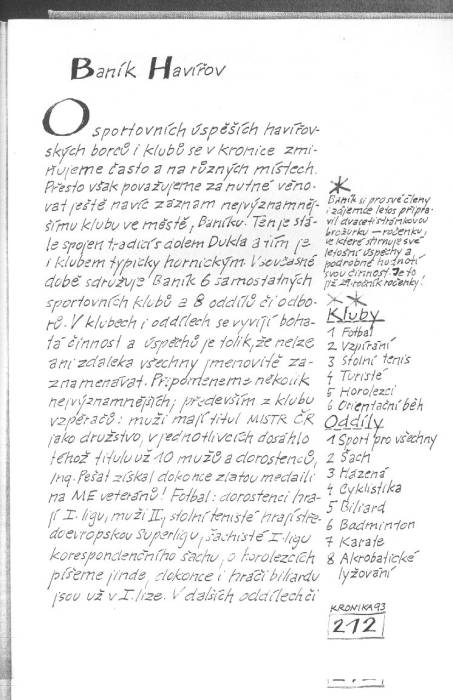 Baník Havířov
O sportovních úspěších havířov-
ských borců i klubů se v kronice zmi-
ňujeme často a na různých místech.
Přesto však považujeme za nutné věno-
vat ještě navíc záznam nejvýznamněj-
šímu klubu ve městě, Baníku. Ten je stá-
le spojen tradicí s dolem Dukla a tím je
i klubem typicky hornickým. V současné
době sdružuje Baník 6 samostatných
sportovních klubů a 8 oddílů či odbo-
rů. V klubech i oddílech se vyvíjí boha-
tá činnost a úspěchů je tolik, že nelze
ani zdaleka všechny jmenovitě za-
znamenávat. Připomeneme několik
nejvýznamnějších; především z klubu
vzpěračů: muži mají titul MISTR ČR
jako družstvo, v jednotlivcích dosáhlo
téhož titulu už 10 mužů a dorostenců,
Ing. Pešat získal dokonce zlatou medaili
na ME veteránů! Fotbal: dorostenci hra-
jí I. ligu, muži II., stolní tenisté hrají stře-
doevropskou Superligu, šachisté I. ligu
korespondenčního šachu, o horolezcích
píšeme jinde, dokonce i hráči biliardu
jsou už v I. lize. V dalších oddílech či
*
BANÍK si pro své členy
i zájemce letos připra-
vil dvacetistránkovou
brožurku — ročenku,
ve které shrnuje své
letošní úspěchy a
podrobně hodnotí
svou činnost. Je to
již 29. ročník ročenky!
* *
Kluby
1 Fotbal
2 Vzpírání
3 Stolní tenis
4 Turisté
5 Horolezci
6 Orientační běh
Oddíly
1 Sport pro všechny
2 Šach
3 Házená
4 Cyklistika
5 Biliard
6 Badminton
7 Karate
8 Akrobatické
lyžování
KRONIKA 93
212